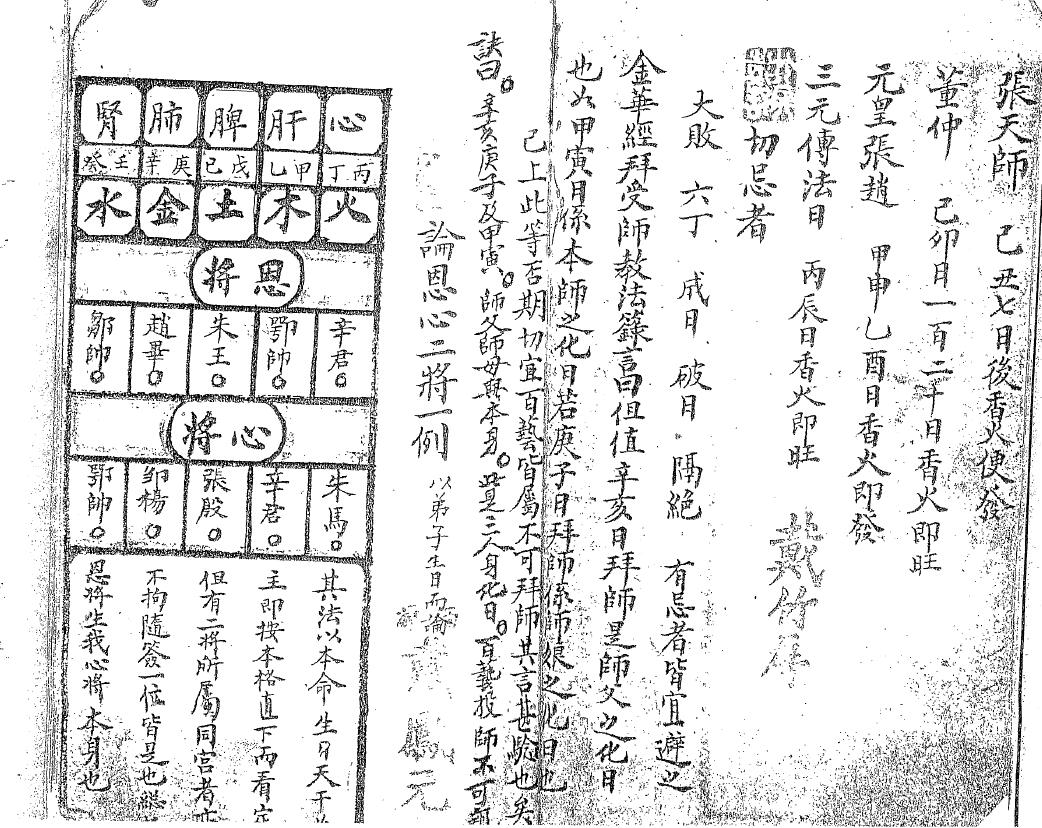 張天師 己丑七日後香火便發
董仲 己卯日一百二十日香火即旺
元皇張趙 甲申乙酉日香火即發
三元傳法日 丙辰日香火即旺
戴竹
切忌者
大敗 六丁 戌日 破日 隔絕 有忌者皆宜避之
金華經拜受師教法籙言曰但值辛亥日拜師是師父之化日
也如甲寅日係本師之化日若庚子日拜師係師娘之化日也
已上此等否期切宜百藝皆屬不可拜師其言甚驗也矣
訣曰。辛亥庚子及甲寅。師父師母與本身。此是三人身化日。百藝投師不可
論恩心二將一例 以弟子生日而論
元
心 肝 脾 肺 腎
丙丁 甲乙 戊己 庚辛 壬癸
火 木 土 金 水
恩將
辛君。 鄂帥。 朱王。 趙畢。 鄒帥。
心將
朱馬。 辛君。 張殷。 鄒楊。 鄂帥。
其法以本命生日天干
主即按本格直下而看定
但有二將所屬同宮者亦
不拘隨簽一位皆是也總
恩將生我心將本身也